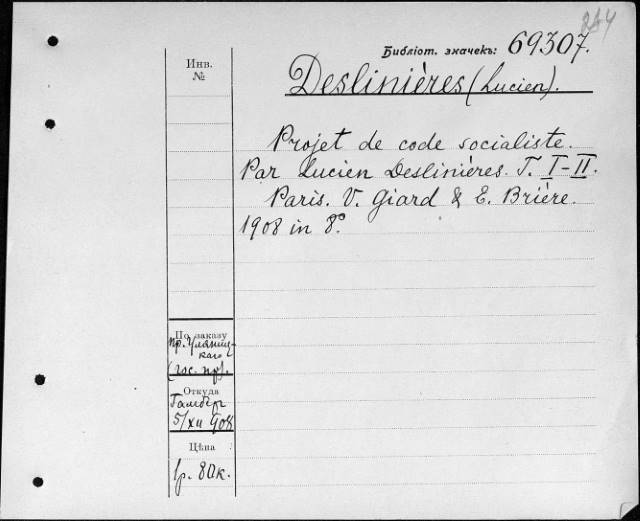 284
Библіот. значекъ: 69307.
Инв.
№
Deslinières (Lucien).
Projet de code socialiste.
Par Lucien Deslinières. T. I-II.
Paris. V. Giard & E. Brière.
1908 in 8º.
По заказу
пр. Уляниц-
каго
(гос. пр).
Откуда
5/XII 908
Цѣна
1р. 80к.